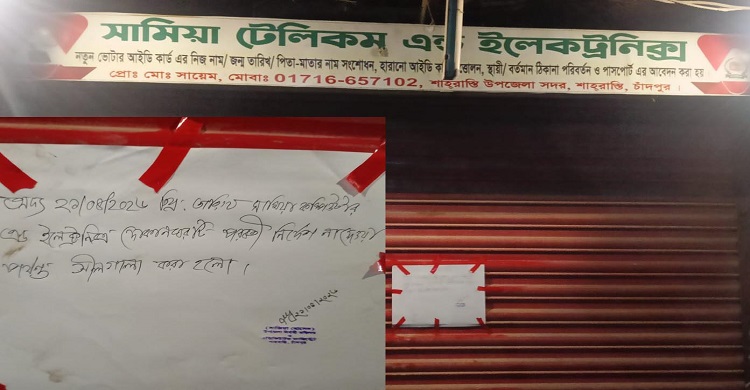 সামিয়া টেলিকম এন্ড ইলেকট্রনিক্স
নতুন ভোটার আইডি কার্ড এর নিজ নাম/ জন্ম তারিখ/ পিতা-মাতার নাম সংশোধন, হারানো আইডি কা ত্তোলন, স্থায়ী/ বর্তমান ঠিকানা পরিবর্তন ও পাসপোর্ট এর আবেদন করা হয়
প্রোঃ মোঃ সায়েম, মোবাঃ 01716-657102, শাহরাস্তি উপজেলা সদর, শাহরাস্তি, চাঁদপুর ।
অদ্য খ্রি. তারিখ সামিয়া
এন্ড ইলেক্ট্রনিক্স দোকানঘরটি পরবর্তী নির্দেশ না দেওয়া
পর্যন্ত সীলগালা করা হলো ।